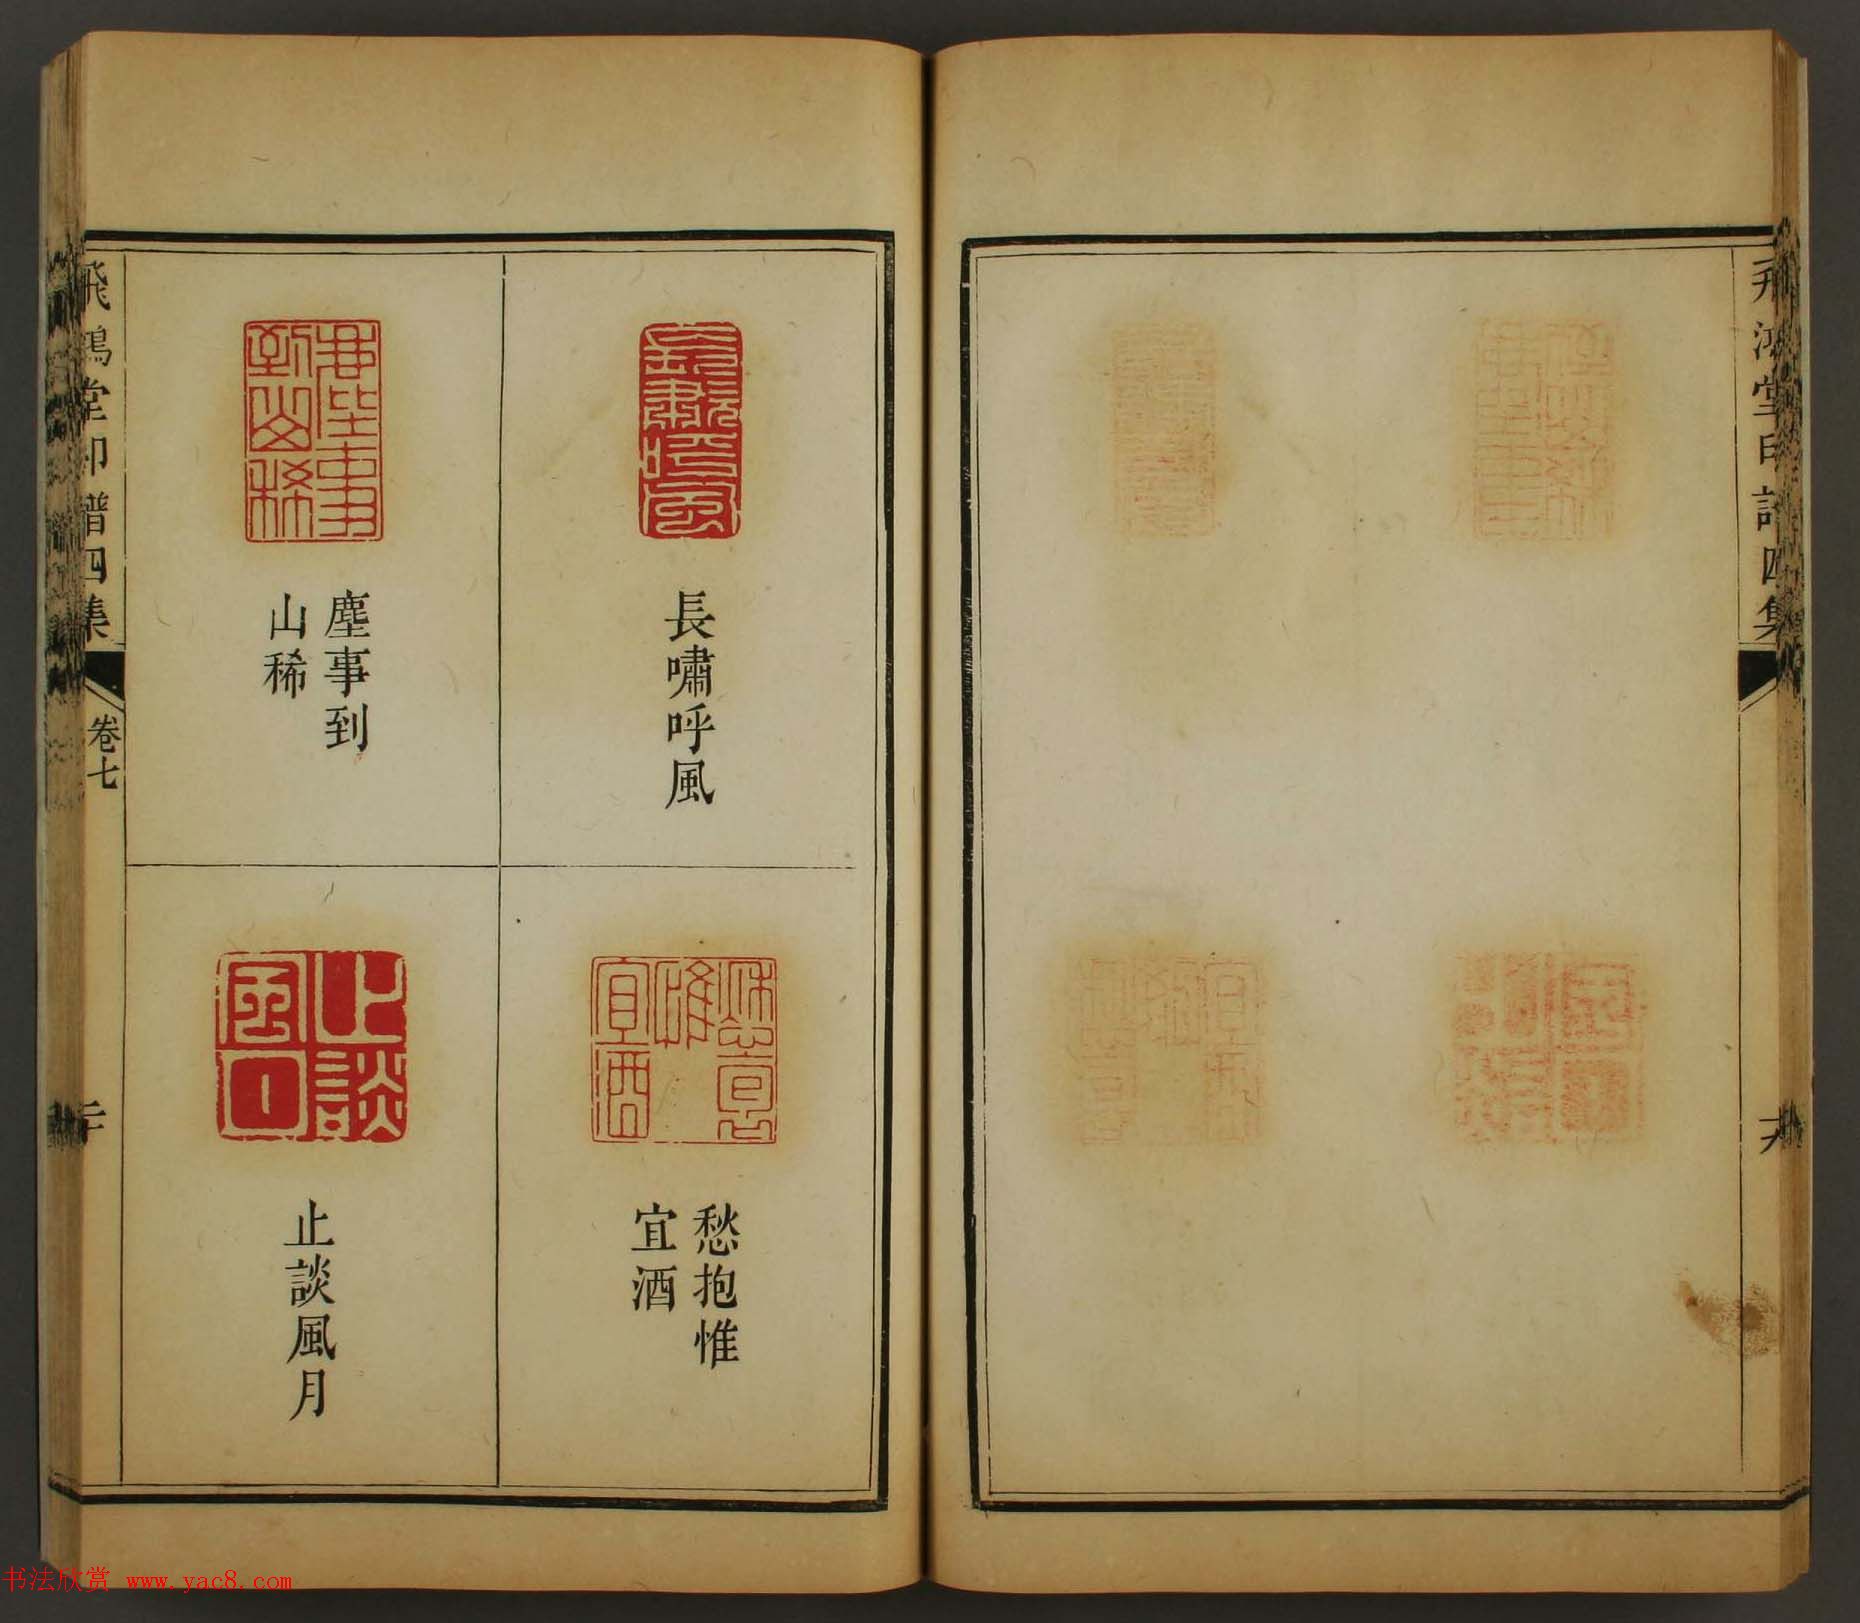 飛鴻堂印譜四集
十八
長嘯呼風
塵事到
山稀
愁抱惟
宜酒
止談風月
飛鴻堂印譜四集
卷七
二十
书法欣赏 www.yac8.com